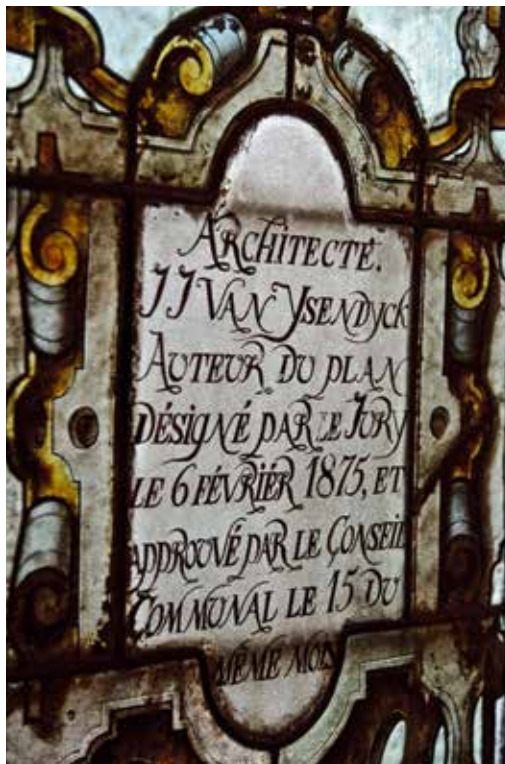 ARCHITECTE.
JJ VAN YSENDYCK
AUTEUR DU PLAN
DÉSIGNÉ PAR LE JURY
LE 6 FÉVRIÉR 1875, ET
APPROUVÉ PAR LE CONSEIL
COMMUNAL LE 15 DU
MÊME MOIS